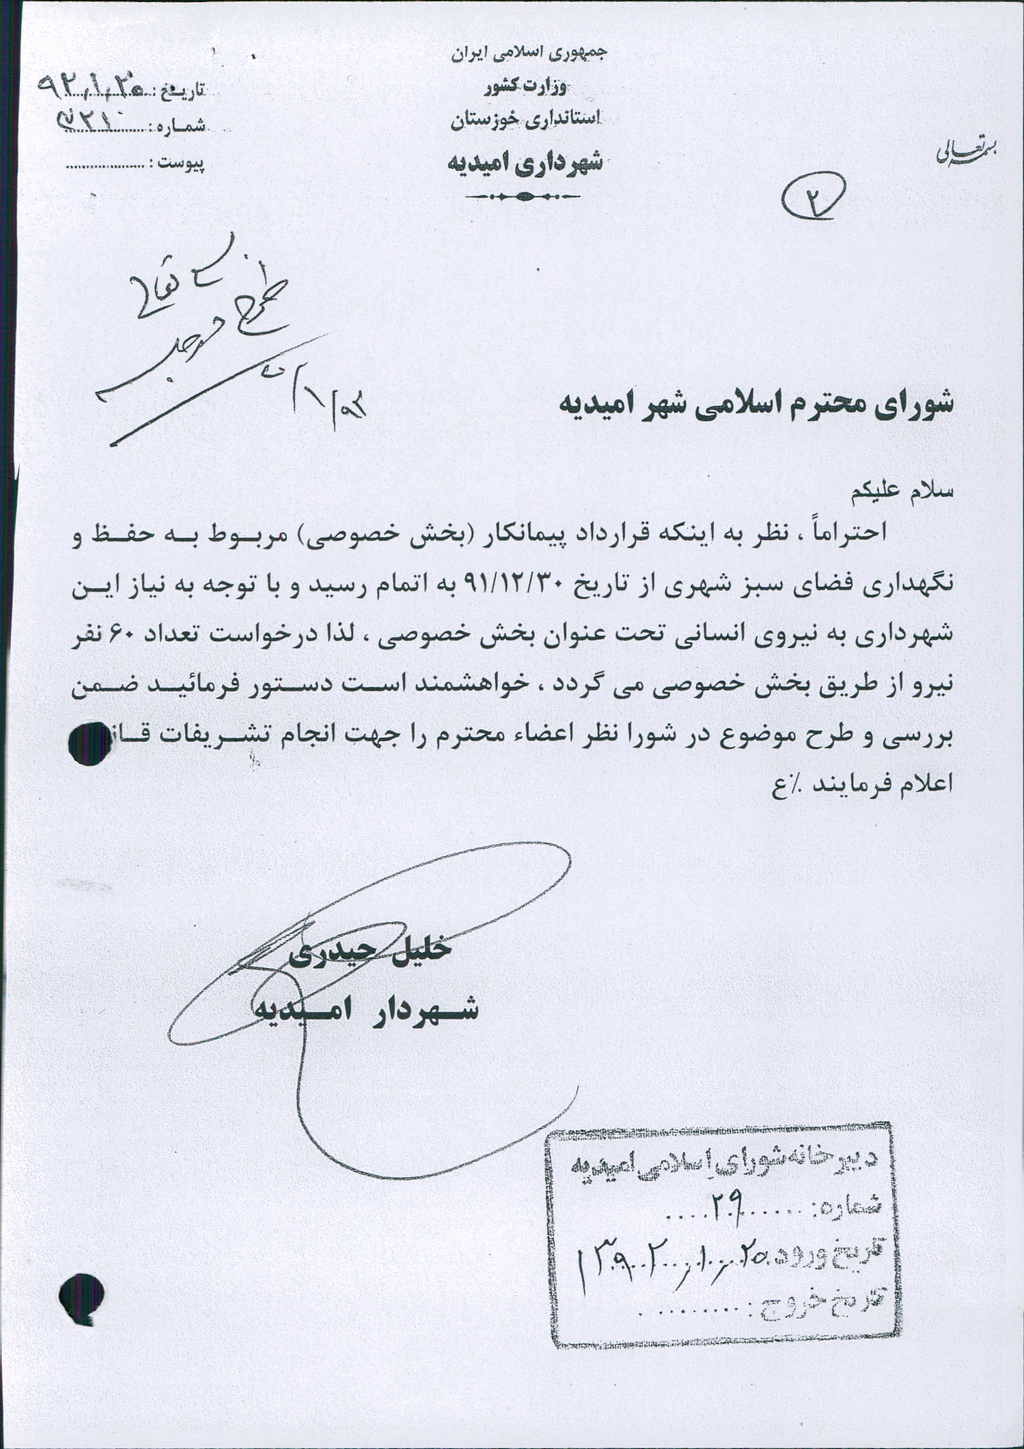 بسمه تعالی
جمهوری اسلامی ایران
وزارت کشور
استانداری خوزستان
شهرداری امیدیه
تاریخ : ۹۲/۱/۲۰
شماره : ۲۱۰
پیوست :
۲
طرح در جلسه
شورای محترم اسلامی شهر امیدیه
سلام علیکم
احتراماً ، نظر به اینکه قرارداد پیمانکار (بخش خصوصی) مربوط به حفظ و
نگهداری فضای سبز شهری از تاریخ ۹۱/۱۲/۳۰ به اتمام رسید و با توجه به نیاز این
شهرداری به نیروی انسانی تحت عنوان بخش خصوصی ، لذا درخواست تعداد ۶۰ نفر
نیرو از طریق بخش خصوصی می گردد ، خواهشمند است دستور فرمائید ضمن
بررسی و طرح موضوع در شورا نظر اعضاء محترم را جهت انجام تشریفات
اعلام فرمایند ٪ع
خلیل حیدری
شهردار امیدیه
دبیرخانه شورای اسلامی امیدیه
شماره: ۲۹
تاریخ ورود ۱۳۹۲/۱/۲۰
تاریخ خروج: